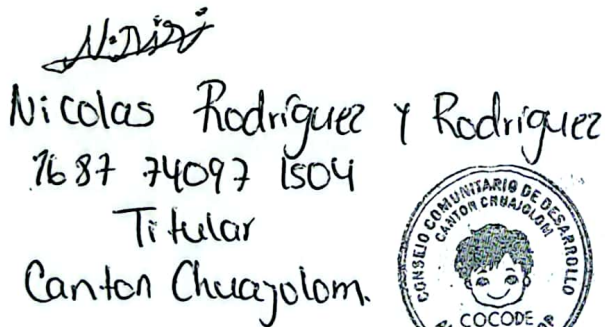 Nicolas Rodríguez y Rodriguez
1687 74097 1504
Titular
Canton Chuajolom.
CONSEJO COMUNITARIO DE DESARROLLO
CANTON CHUAJOLOM
COCODE